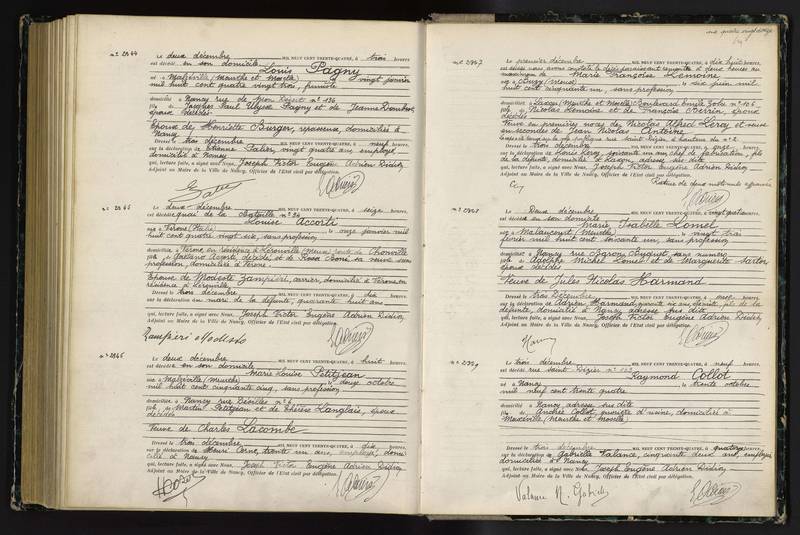 n° 2344
Le deux décembre MIL NEUF CENT TRENTE-QUATRE, à trois heures
est décédé en son domicile
Louis Pagny
né à Malzéville (Meurthe et Moselle) vingt janvier
mil huit cent quatre vingt trois,
domicilié à Nancy rue de Mon Désert n° 136
fils de Ulysse Pagny et de Jeanne
époux décédés
Epoux de Henriette Burger, repasseuse, domiciliée à
Nancy
Dressé le trois décembre MIL NEUF CENT TRENTE-QUATRE, à neuf heures
sur la déclaration de Etienne vingt quatre ans, employé
domicilié à Nancy
qui, lecture faite, a signé avec Nous, Joseph Victor Eugène Adrien
Adjoint au Maire de la Ville de Nancy, Officier de l'Etat civil par délégation.
n° 2345
Le deux décembre MIL NEUF CENT TRENTE-QUATRE, à seize heures
est décédée quai de la Bataille n° 24
Louise Accorti
née à Vérone (Italie) le onze janvier mil
huit cent quatre vingt six, sans profession
domiciliée à Vérone, en résidence à Lérouville (Meuse) route de Chonville
fille de Gaetano Accorti, décédé et de Rosa Bone, sa veuve sans
profession, domiciliée à Vérone
Epouse de Modeste Zampieri, carrier, domicilié à Vérone, en
résidence à Lérouville
Dressé le trois décembre MIL NEUF CENT TRENTE-QUATRE, à dix heures
sur la déclaration du mari de la défunte, quarante huit ans
qui, lecture faite, a signé avec Nous, Joseph Victor Eugène Adrien
Adjoint au Maire de la Ville de Nancy, Officier de l'Etat civil par délégation.
Zampieri Modesto
n° 2346
Le deux décembre MIL NEUF CENT TRENTE-QUATRE, à huit heures
est décédée en son domicile
Marie Louise Petitjean
née à Malzéville (Meurthe) le douze octobre
mil huit cent cinquante cinq, sans profession
domiciliée à Nancy rue Désilles n° 6
fille de Martin Petitjean et de Thérèse Langlais, époux
décédés
Veuve de Charles Lacombe
Dressé le trois décembre MIL NEUF CENT TRENTE-QUATRE, à dix heures
sur la déclaration de Henri trente un ans, employé, domi-
cilié à Nancy
qui, lecture faite, a signé avec Nous, Joseph Victor Eugène Adrien
Adjoint au Maire de la Ville de Nancy, Officier de l'Etat civil par délégation.
n° 2347
Le premier décembre MIL NEUF CENT TRENTE-QUATRE, à dix huit heures
Marie Françoise Lemoine
née à (Meuse) le six juin mil
huit cent cinquante un, sans profession
domiciliée à Laxou (Meurthe et Moselle) Boulevard Emile Zola n° 106
fille de Nicolas Lemoine et de Françoise Perrin, époux
décédés
Veuve en premières noces de Nicolas Alfred Leroy et veuve
en secondes de Jean Nicolas Antoine
Dressé le trois décembre MIL NEUF CENT TRENTE-QUATRE, à onze heures
sur la déclaration de Leroy soixante un ans, chef de fabrication, fils
de la défunte, domicilié à Laxou, adresse sus dite
qui, lecture faite, a signé avec Nous, Joseph Victor Eugène Adrien
Adjoint au Maire de la Ville de Nancy, Officier de l'Etat civil par délégation.
Rature de deux mots nuls approuvée
n° 2348
Le Deux décembre MIL NEUF CENT TRENTE-QUATRE, à vingt quatre heures
est décédée en son domicile
Marie Isabelle Lomel
née à Malaucourt (Meurthe) le vingt trois
février mil huit cent soixante un, sans profession
domiciliée à Nancy rue Baron Buquet sans numéro
fille de Adolphe Michel Lomel et de Marguerite Sartor
époux décédés
Veuve de Jules Nicolas Harmand
Dressé le trois Décembre MIL NEUF CENT TRENTE-QUATRE, à neuf heures
sur la déclaration de Adrien Harmand, fils de la
défunte, domicilié à Nancy adresse sus dite
qui, lecture faite, a signé avec Nous, Joseph Victor Eugène Adrien
Adjoint au Maire de la Ville de Nancy, Officier de l'Etat civil par délégation.
n° 2349
Le trois décembre MIL NEUF CENT TRENTE-QUATRE, à neuf heures
est décédé rue Saint Dizier n° 163
Raymond Collot
né à Nancy le trente octobre
mil neuf cent trente quatre
domicilié à Nancy, adresse sus dite
fils de Andrée Collot, ouvrière d'usine, domiciliée à
Maxéville (Meurthe et Moselle)
Dressé le trois décembre MIL NEUF CENT TRENTE-QUATRE, à quatorze heures
sur la déclaration de Gabrielle Valance, cinquante deux ans, employée
domiciliée à Nancy
qui, lecture faite, a signé avec Nous, Joseph Eugène Adrien
Adjoint au Maire de la Ville de Nancy, Officier de l'Etat civil par délégation.